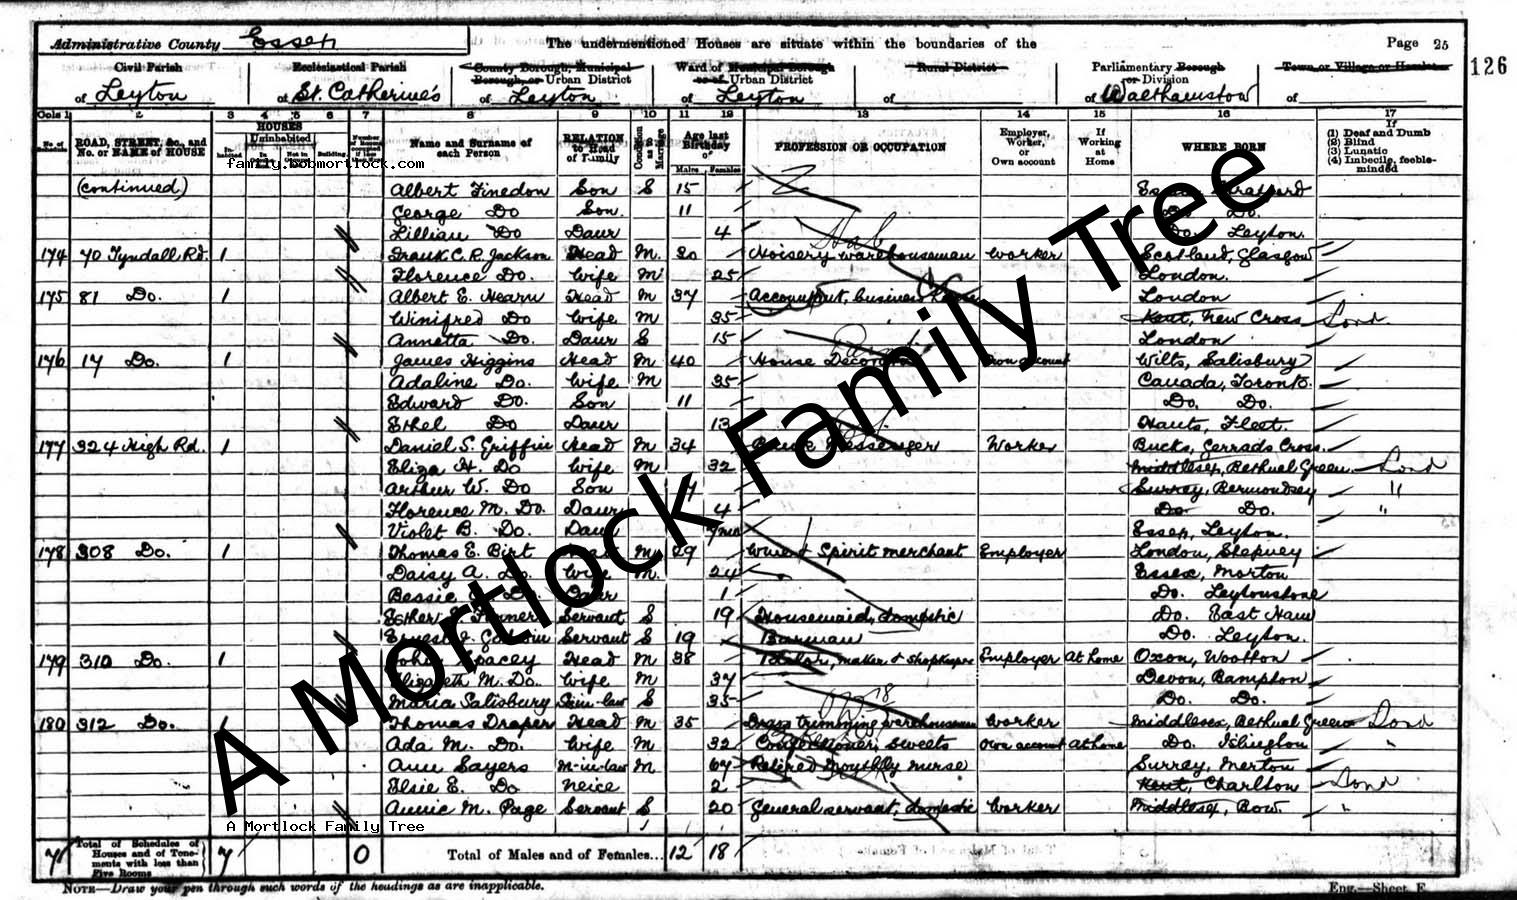 Administrative County Essex
The undermentioned Houses are situate within the boundaries of the
Page 25
126
Civil Parish of Leyton
Ecclesiastical Parish of St. Catherine's
County Borough, Municipal Borough, or Urban District of Leyton
Ward of Municipal Borough or of Urban District of Leyton
Rural District of
Parliamentary Borough or Division of Walthamstow
Town or Village or Hamlet of
Cols 1 2 3 4 5 6 7 8 9 10 11 12 13 14 15 16 17
No. of Schedule ROAD, STREET, &c., and No. or NAME of HOUSE HOUSES Inhabited Uninhabited Building Name and Surname of each Person RELATION to Head of Family Condition as to Marriage Age last Birthday of Males Females PROFESSION OR OCCUPATION Employer, Worker, or Own account If Working at Home WHERE BORN If (1) Deaf and Dumb (2) Blind (3) Lunatic (4) Imbecile, feeble-minded
family.bobmortlock.com
(continued) Albert Finedon Son S 15 Essex, Stratford
George Do Son. 11 Do. Do.
Lillian Do Daur 4 Do. Leyton.
174 70 Tyndall Rd. 1 Frank C. R. Jackson Head M. 30 Hosiery warehouseman Worker Scotland, Glasgow
Florence Do. Wife M 25 London.
175 81 Do. 1 Albert E. Hearn Head M 37 Accountant, business London
Winifred Do Wife M 35 Kent, New Cross Lond.
Annetta Do. Daur S 15 London
176 17 Do. 1 James Higgins Head M 40 House Decorator Own account Wilts, Salisbury
Adaline Do. Wife M 35 Canada, Toronto.
Edward Do. Son 11 Do. Do.
Ethel Do Daur 13 Hants, Fleet.
177 324 High Rd. 1 Daniel S. Griffin Head M 34 Messenger Worker Bucks, Gerrads Cross.
Eliza H. Do Wife M 32 Middlesex, Bethnal Green Lond
Arthur W. Do Son Surrey, Bermondsey "
Florence M. Do. Daur 4 Do Do. "
Violet B. Do. Daur Essex, Leyton.
178 308 Do. 1 Thomas E. Birt Head M 29 Wine & Spirit merchant Employer London, Stepney
Daisy A. Do. Wife M. 24 Essex, Morton
Bessie Do. Daur 1 Do. Leytonstone
Esther Farmer Servant S 19 Housemaid, domestic Do. East Ham
Ernest J. Servant S 19 Barman Do. Leyton.
179 310 Do. 1 John Spacey Head M 38 maker & Shopkeeper Employer At home Oxon, Wootton
Elizabeth M. Do. Wife M 37 Devon, Bampton
Maria Salisbury Sis-in-law S 35 Do. Do.
180 312 Do. 1 Thomas Draper Head M 35 Dress trimming warehouseman Worker Middlesex, Bethnal Green Lond
Ada M. Do. Wife M 32 Confectioner, sweets Own account At home Do. Islington "
Ann Sayers M-in-law M 67 Retired monthly nurse Surrey, Merton
Elsie E. Do Neice 2 Kent, Charlton Lond
Annie M. Page Servant S 20 General servant, domestic Worker Middlesex, Bow. "
A Mortlock Family Tree
A Mortlock Family Tree
7 Total of Schedules of Houses and of Tenements with less than Five Rooms 7 0 Total of Males and of Females... 12 18
NOTE—Draw your pen through such words of the headings as are inapplicable.
Eng.—Sheet E.